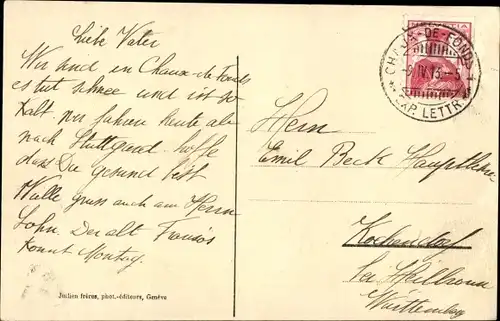 Liebe Vater
Wir sind in Chaux-de-Fonds
es tut schnee und ist so
Kalt. wir fahren heute abe
nach Stuttgard. hoffe
dass Du gesund bist
gruss auch am Herrn
Sohn. Der alt
Kommt Montag.
Julien frères, phot.-éditeurs, Genève
CHAUX-DE-FONDS
IV.13.-5
EXP. LETTR.
Herrn
Emil Beck Hauptlehrer
Kochendorf
bei Heilbronn
Württemberg